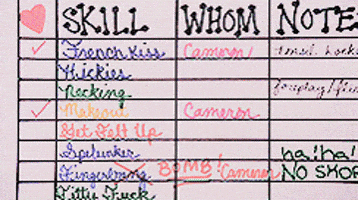 SKILL WHOM NOTE
French Kiss Cameron
Hickies
Necking foreplay
Makeout Cameron
Get Felt Up
Spelunker ha! ha!
Fingerbang BOMB! Cameron NO SHOR
Titty Fuck